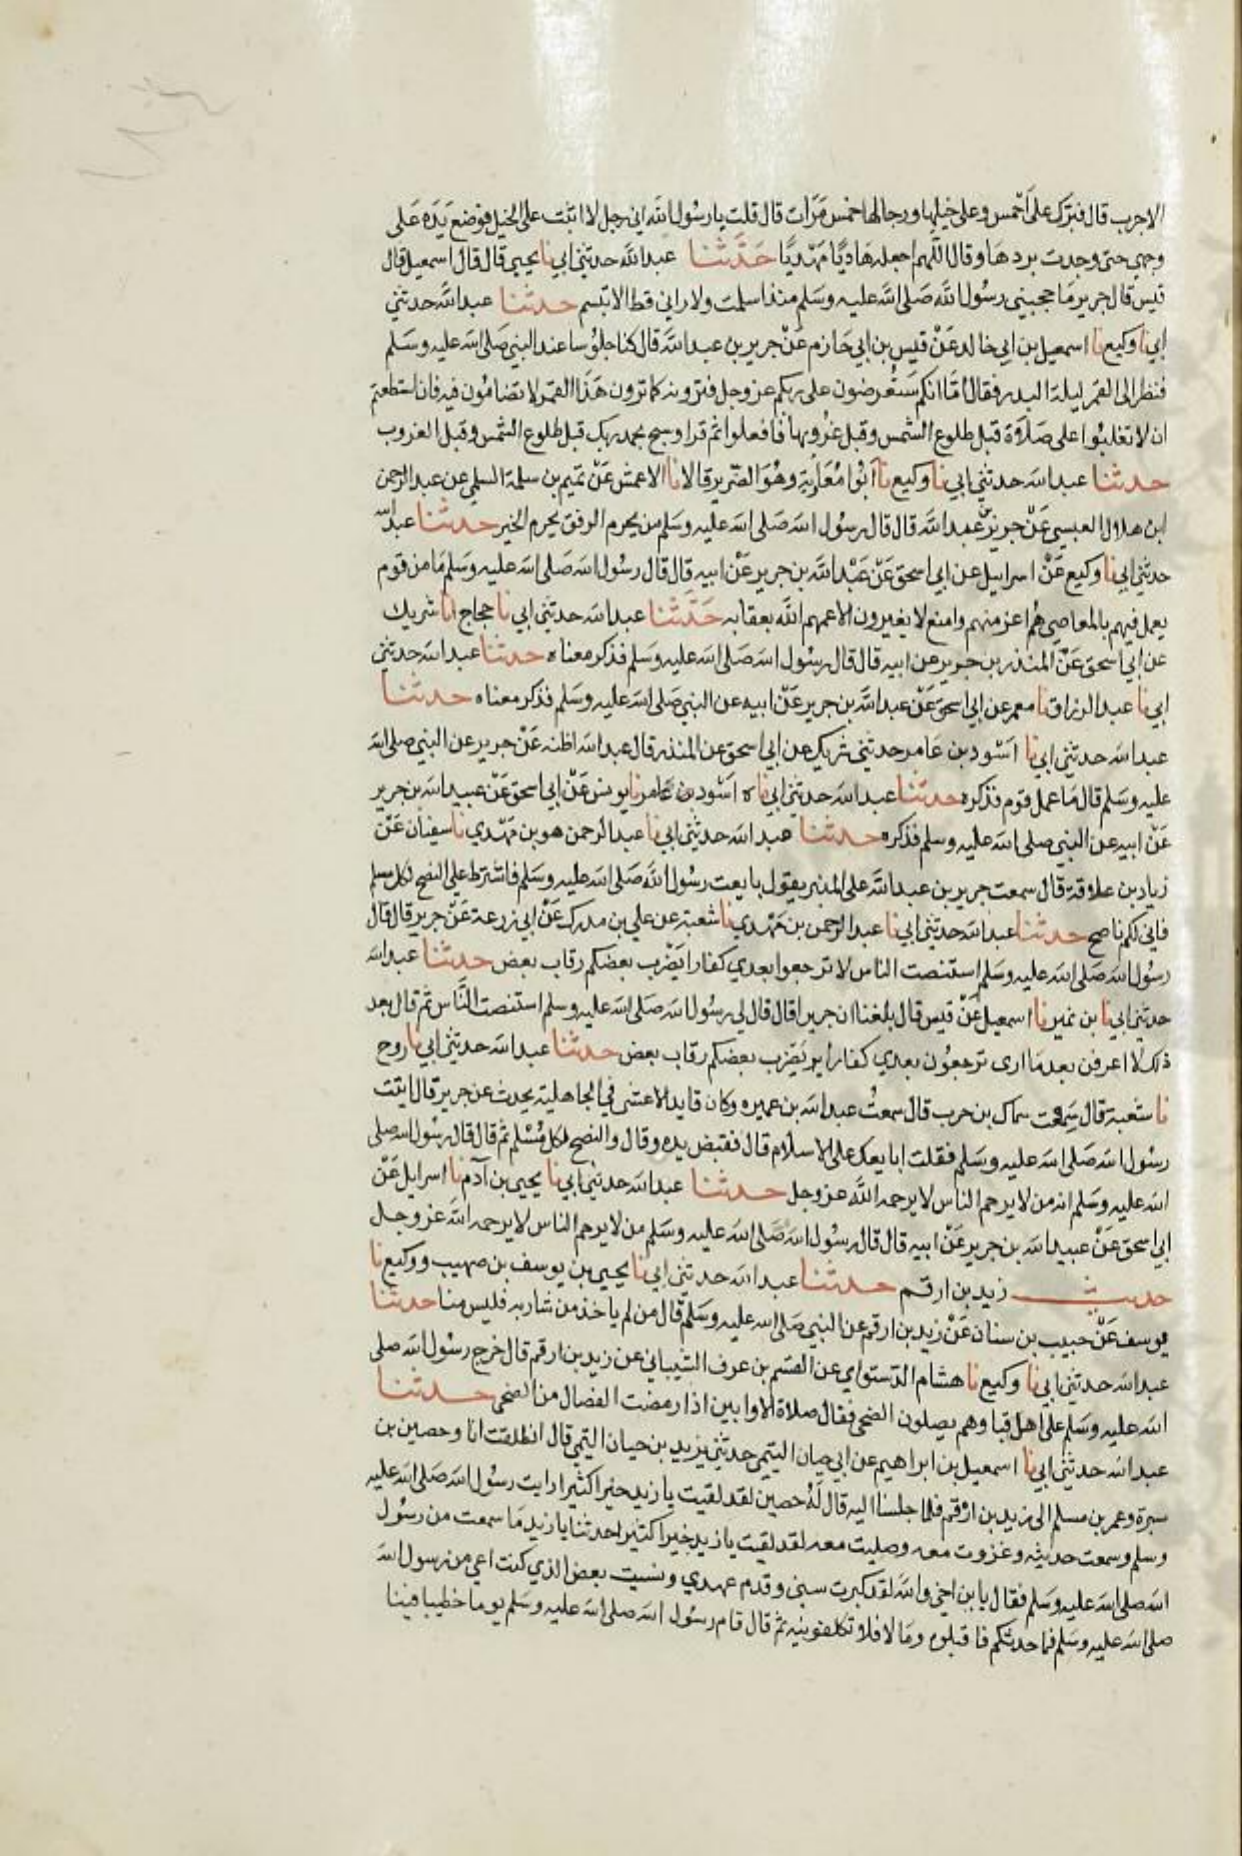 الاجرب قال فبرك على احمس وعلى خيلها ورجالها خمس مرات قال قلت يا رسول الله اني رجل لا اثبت على الخيل فوضع يده على
وجهي حتى وجدت بردها وقال اللهم اجعله هاديا مهديا حدثنا عبد الله حدثني ابي نا يحيى قال قال اسمعيل قال
قيس قال جرير ما حجبني رسول الله صلى الله عليه وسلم منذ اسلمت ولا راني قط الا تبسم حدثنا عبد الله حدثني
ابي نا وكيع نا اسمعيل بن ابي خالد عن قيس بن ابي حازم عن جرير بن عبد الله قال كنا جلوسا عند النبي صلى الله عليه وسلم
فنظر الى القمر ليلة البدر فقال اما انكم ستعرضون على ربكم عز وجل فترونه كما ترون هذا القمر لا تضامون فيه فان استطعتم
ان لا تغلبوا على صلاة قبل طلوع الشمس وقبل غروبها فافعلوا ثم قرا وسبح بحمد ربك قبل طلوع الشمس وقبل الغروب
حدثنا عبد الله حدثني ابي نا وكيع نا ابوا معاوية وهو الضرير قالا نا الاعمش عن تميم بن سلمة السلمي عن عبد الرحمن
ابن هلال العبسي عن جرير بن عبد الله قال قال رسول الله صلى الله عليه وسلم من يحرم الرفق يحرم الخير حدثنا عبد الله
حدثني ابي نا وكيع عن اسرايل عن ابي اسحق عن عبد الله بن جرير عن ابيه قال قال رسول الله صلى الله عليه وسلم ما من قوم
يعمل فيهم بالمعاصي هم اعز منهم وامنع لا يغيرون الا عمهم الله بعقابه حدثنا عبد الله حدثني ابي نا حجاج انا شريك
عن ابي اسحق عن المنذر بن جرير عن ابيه قال قال رسول الله صلى الله عليه وسلم فذكر معناه حدثنا عبد الله حدثني
ابي نا عبد الرزاق نا معمر عن ابي اسحق عن عبد الله بن جرير عن ابيه عن النبي صلى الله عليه وسلم فذكر معناه حدثنا
عبد الله حدثني ابي نا اسود بن عامر حدثني شريك عن ابي اسحق عن المنذر قال عبد الله اظنه عن جرير عن النبي صلى الله
عليه وسلم قال ما عمل قوم فذكره حدثنا عبد الله حدثني ابي نا اسود بن عامر نا يونس عن ابي اسحق عن عبيد الله بن جرير
عن ابيه عن النبي صلى الله عليه وسلم فذكره حدثنا عبد الله حدثني ابي نا عبد الرحمن هو بن مهدي نا سفيان عن
زياد بن علاقة قال سمعت جرير بن عبد الله على المنبر يقول بايعت رسول الله صلى الله عليه وسلم فاشترط علي النصح لكل مسلم
فاني لكم ناصح حدثنا عبد الله حدثني ابي نا عبد الرحمن بن مهدي نا شعبة عن علي بن مدرك عن ابي زرعة عن جرير قال قال
رسول الله صلى الله عليه وسلم استنصت الناس لا ترجعوا بعدي كفارا يضرب بعضكم رقاب بعض حدثنا عبد الله
حدثني ابي نا بن نمير نا اسمعيل عن قيس قال بلغنا ان جريرا قال قال لي رسول الله صلى الله عليه وسلم استنصت الناس ثم قال بعد
ذلك لا اعرفن بعد ما ارى ترجعون بعدي كفارا يضرب بعضكم رقاب بعض حدثنا عبد الله حدثني ابي نا روح
نا شعبة قال سمعت سماك بن حرب قال سمعت عبد الله بن عميره وكان قايد الاعشى في الجاهلية يحدث عن جرير قال اتيت
رسول الله صلى الله عليه وسلم فقلت ابايعك على الاسلام قال فقبض يده وقال والنصح لكل مسلم ثم قال قال رسول الله صلى
الله عليه وسلم انه من لا يرحم الناس لا يرحمه الله عز وجل حدثنا عبد الله حدثني ابي نا يحيى بن آدم نا اسرايل عن
ابي اسحق عن عبيد الله بن جرير عن ابيه قال قال رسول الله صلى الله عليه وسلم من لا يرحم الناس لا يرحمه الله عز وجل
حديث زيد بن ارقم حدثنا عبد الله حدثني ابي نا يحيى بن يوسف بن صهيب ووكيع نا
يوسف عن حبيب بن سنان عن زيد بن ارقم عن النبي صلى الله عليه وسلم قال من لم ياخذ من شاربه فليس منا حدثنا
عبد الله حدثني ابي نا وكيع نا هشام الدستواي عن القسم بن عوف الشيباني عن زيد بن ارقم قال خرج رسول الله صلى
الله عليه وسلم على اهل قبا وهم يصلون الضحى فقال صلاة الاوابين اذا رمضت الفصال من الضحى حدثنا
عبد الله حدثني ابي نا اسمعيل بن ابراهيم عن ابي حيان التيمي حدثني يزيد بن حيان التيمي قال انطلقت انا وحصين بن
سبرة وعمر بن مسلم الى زيد بن ارقم فلما جلسنا اليه قال له حصين لقد لقيت يا زيد خيرا كثيرا رايت رسول الله صلى الله عليه
وسلم وسمعت حديثه وغزوت معه وصليت معه لقد لقيت يا زيد خيرا كثيرا حدثنا يا زيد ما سمعت من رسول
الله صلى الله عليه وسلم فقال يا بن اخي والله لقد كبرت سني وقدم عهدي ونسيت بعض الذي كنت اعي من رسول الله
صلى الله عليه وسلم فما حدثتكم فاقبلوه وما لا فلا تكلفونيه ثم قال قام رسول الله صلى الله عليه وسلم يوما خطيبا فينا